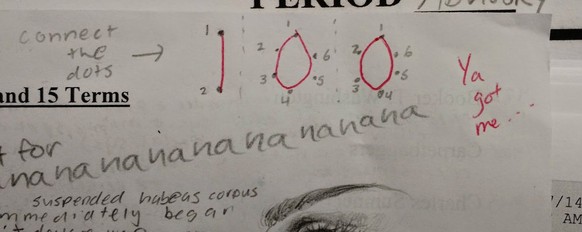 PERIOD
connect
the
dots →
1
2
1
2
3
4
5
6
1
2
3
4
5
6
Ya
got
me...
and 15 Terms
for
nananananananananana
suspended habeas corpus
immediately began
/14
AM